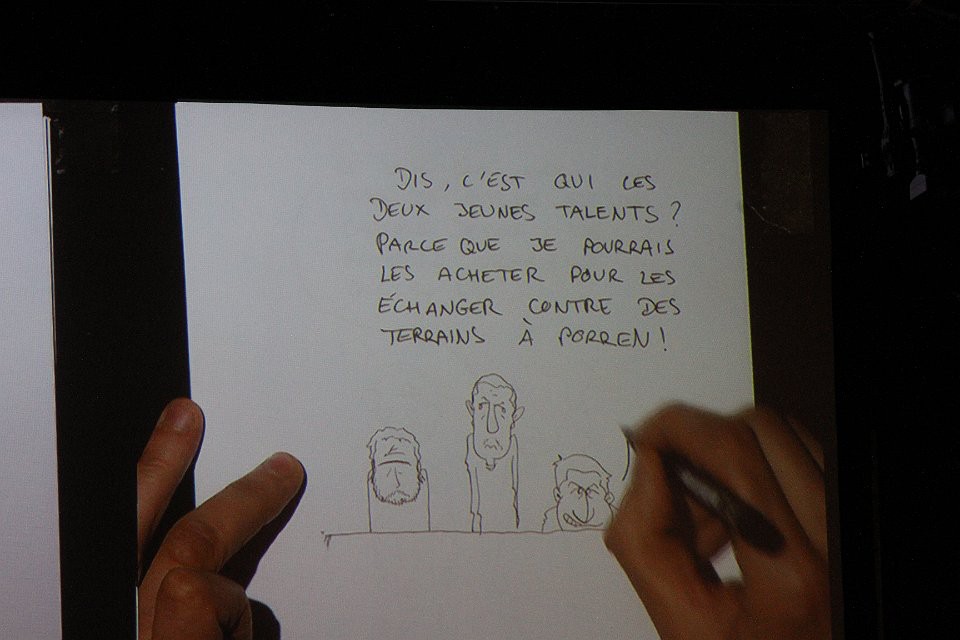 DIS, C'EST QUI CES
DEUX JEUNES TALENTS ?
PARCE QUE JE POURRAIS
LES ACHETER POUR LES
ÉCHANGER CONTRE DES
TERRAINS À PORREN !